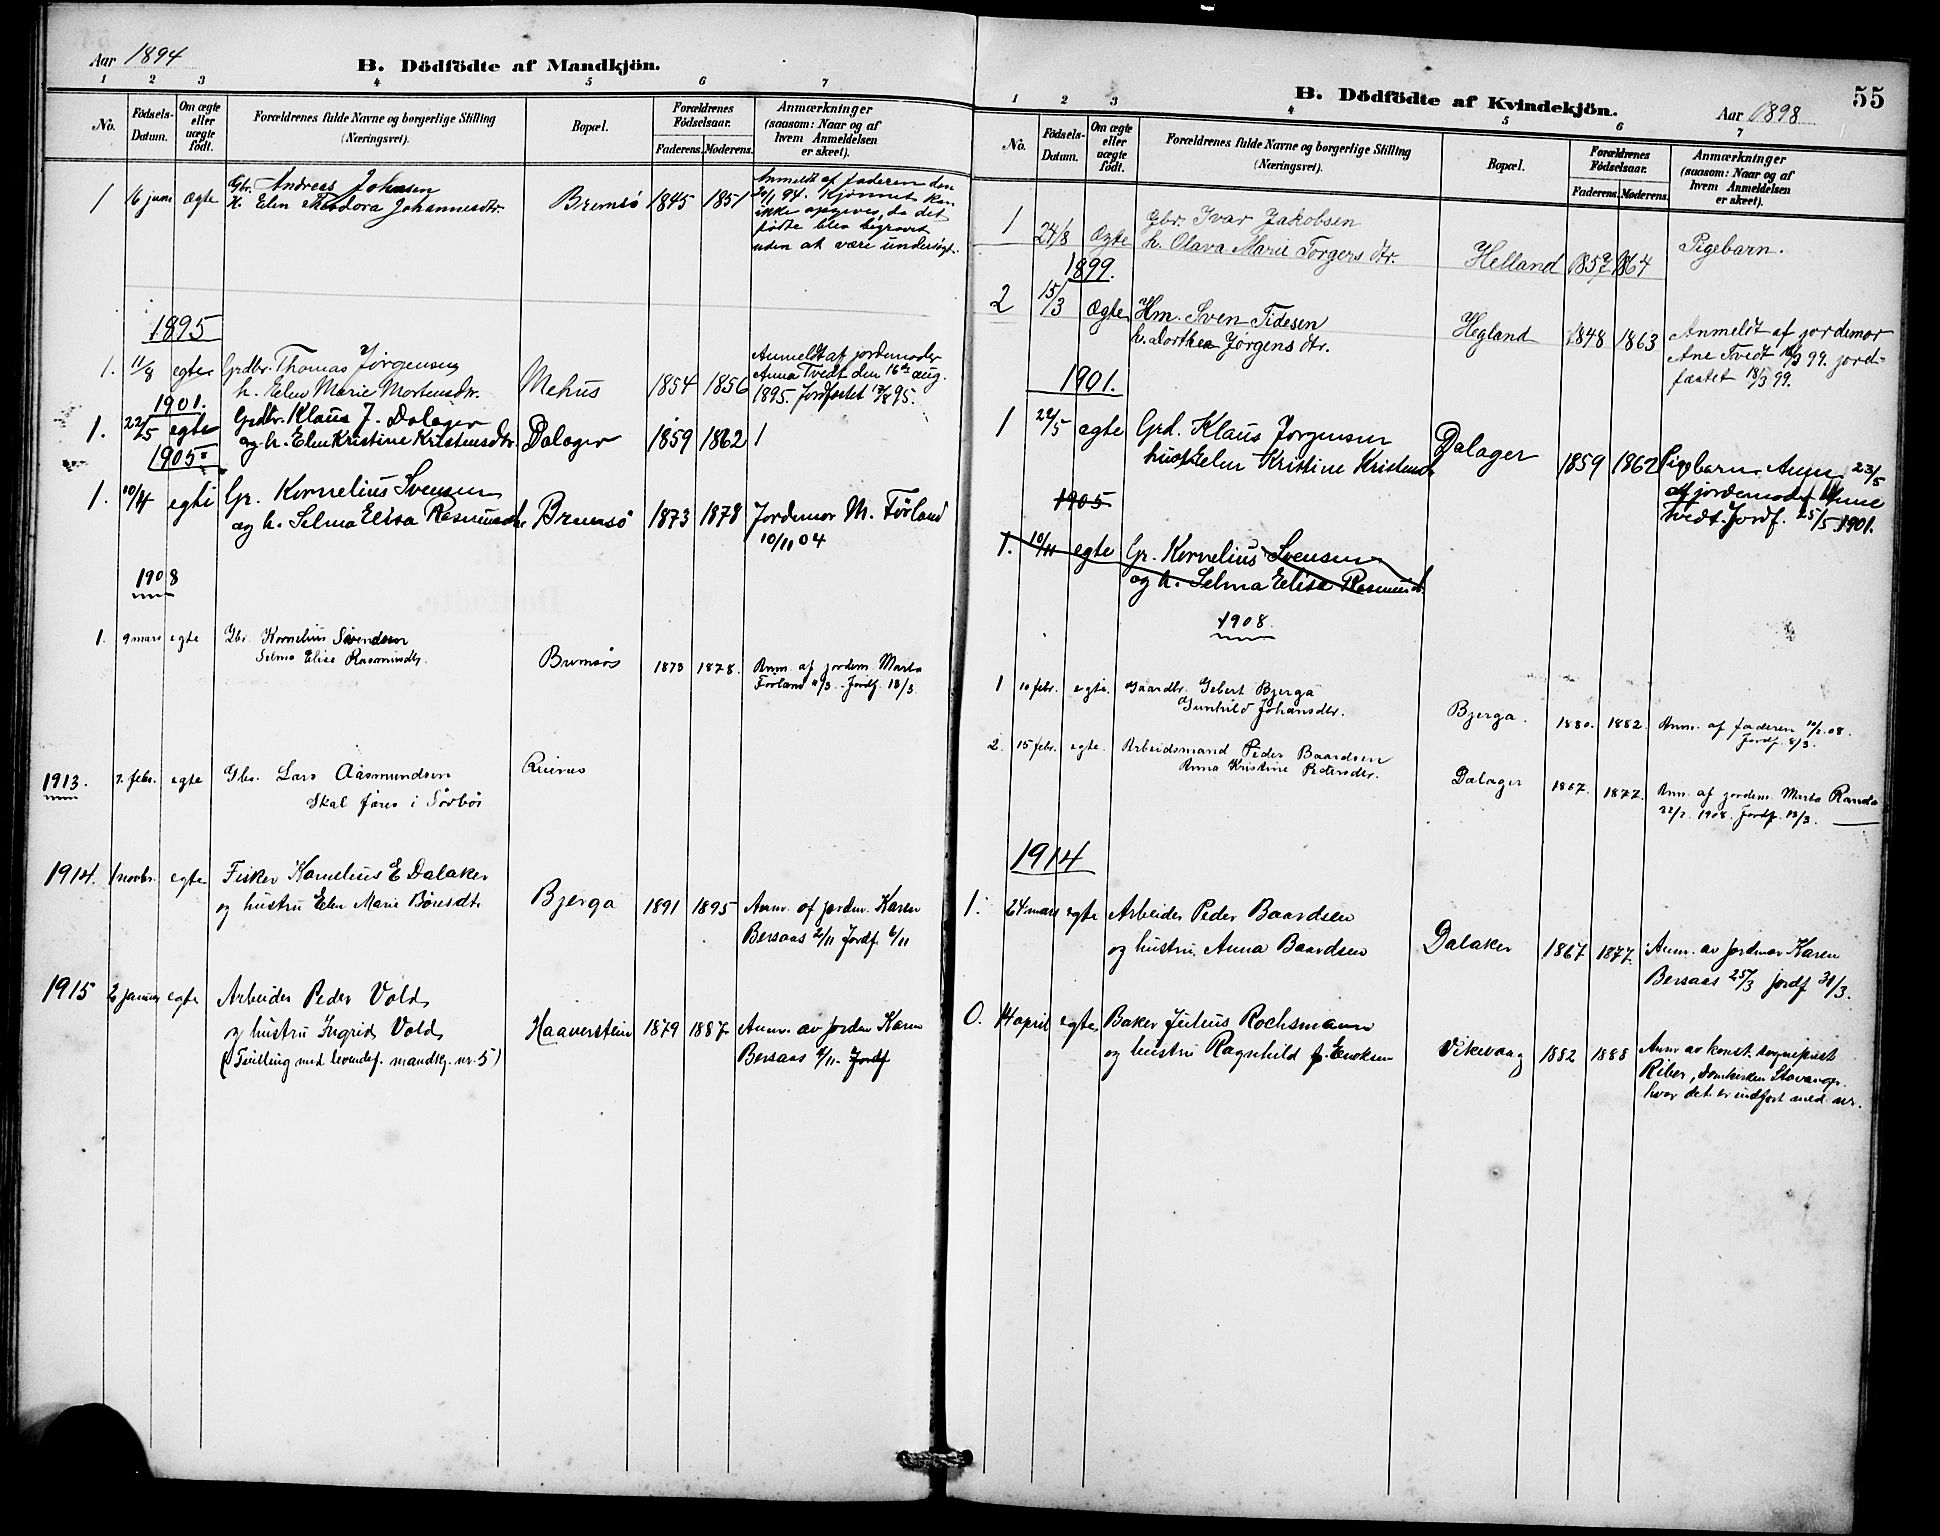 Aar 1894
B. Dödfödte af Mandkjön.
1 2 3 4 5 6 7
No.
Födsels-
Datum.
Om ægte
eller
uægte
født.
Forældrenes fulde Navne og borgerlige Stilling
(Næringsvei).
Bopæl.
Forældrenes
Födselsaar.
Faderens. Moderens.
Anmærkninger
(saasom: Naar og af
hvem Anmeldelsen
er skeet).
1 16 juni Ægte Gbr. Andreas Johnsen
H. Elen Theodora Johannesdtr.
Bremsö 1845 1851
Anmeldt af faderen den
20/7 94. Kjønnet kan
ikke opgives, da det
fødte blev begravet
uden at være undersøgt.
1895
1. 11/8 egte Grdbr. Thomas Jörgensen
h. Elen Marie Mortensdtr.
Mehus 1854 1856
Anmeldt af jordemoder
Anna Tvedt den 16de aug.
1895. Jordfæstet 17/8 95.
1901.
1. 22/5 egte Grdbr. Klaus J. Dalager
og h. Elen Kristine Kristensdtr.
Dalager 1859 1862 1
1905
1. 10/4 egte Gr. Kornelius Svensen
og h. Selma Elisa Rasmusdtr.
Bremsö 1873 1878 Jordemor M. Förland
10/11 04
1908
1. 9 mars egte Gbr. Kornelius Svendsen
Selma Elise Rasmusdtr.
Bremsös 1873 1878. Anm. af jordem. Marta
Förland 11/3. Jordf. 13/3
1913. 2. febr. egte Gbr. Lars Aasmundsen
Skal føres i Sørbös
1914. 1 novbr. egte Fisker Kornelius E Dalaker
og hustru Elen Marie Böresdtr
Bjerga 1891 1895 Anm. af jordm. Karen
Bersaas 2/11 Jordf. 6/11
1915 2 januar egte Arbeider Peder Vold
og hustru Ingrid Vold
(Tvilling med levendef. mandkj. nr. 5)
Haaverstein 1879 1887 Anm. av jordm Karen
Bersaas 4/11. Jordf
B. Dödfödte af Kvindekjön.
Aar 1898
55
1 2 3 4 5 6 7
No.
Födsels-
Datum.
Om ægte
eller
uægte
født.
Forældrenes fulde Navne og borgerlige Stilling
(Næringsvei).
Bopæl.
Forældrenes
Födselsaar.
Faderens. Moderens.
Anmærkninger
(saasom: Naar og af
hvem Anmeldelsen
er skeet).
1 24/8 Ægte Gbr. Ivar Jakobsen
h. Olava Marie Torgers dtr.
Helland 1857 1864 Pigebarn.
1899.
2 15/3 Ægte Hm. Sven Tidesen
h. Dorthea Jørgens dtr.
Hegland 1848 1863 Anmeldt af jordemor
Ane Tvedt 99. jord-
fæstet 18/3 99.
1901.
1 22/5 egte Grd. Klaus Jorgensen
hustr Elen Kristine Kristensd
Dalager 1859 1862 Pigebarn. Anm 23/5
af jordemoder Anne
Tvedt. Jordf. 25/5 1901.
1905
1. 10/11 egte Gr. Kornelius Svensen
og h. Selma Elisa Rasmusd.
1908.
1 10 febr. egte Gaardbr. Gebert Bjerga
Gunhild Johansdtr.
Bjerga. 1880. 1882 Anm. af faderen 10/2.08.
Jordf. 8/3.
2. 15 febr. egte. Arbeidsmand Peder Baardsen
Anna Kristine Pedersdtr.
Dalager 1867. 1877. Anm. af jordem. Marta Randa
22/2. 1908. Jordf. 13/3.
1914
1. 24 mars egte Arbeider Peder Baardsen
og hustru Anna Baardsen
Dalaker 1867 1877. Anm. av jordmor Karen
Bersaas 25/3 jordf 31/3.
0. 14 april egte Baker Julius Rochsmann
og hustru Ragnhild f. Enoksen
Vikevaag 1882 1888 Anm av konst. sogneprest
Riber, Domkirken Stavanger.
hvor det er indført med nr.